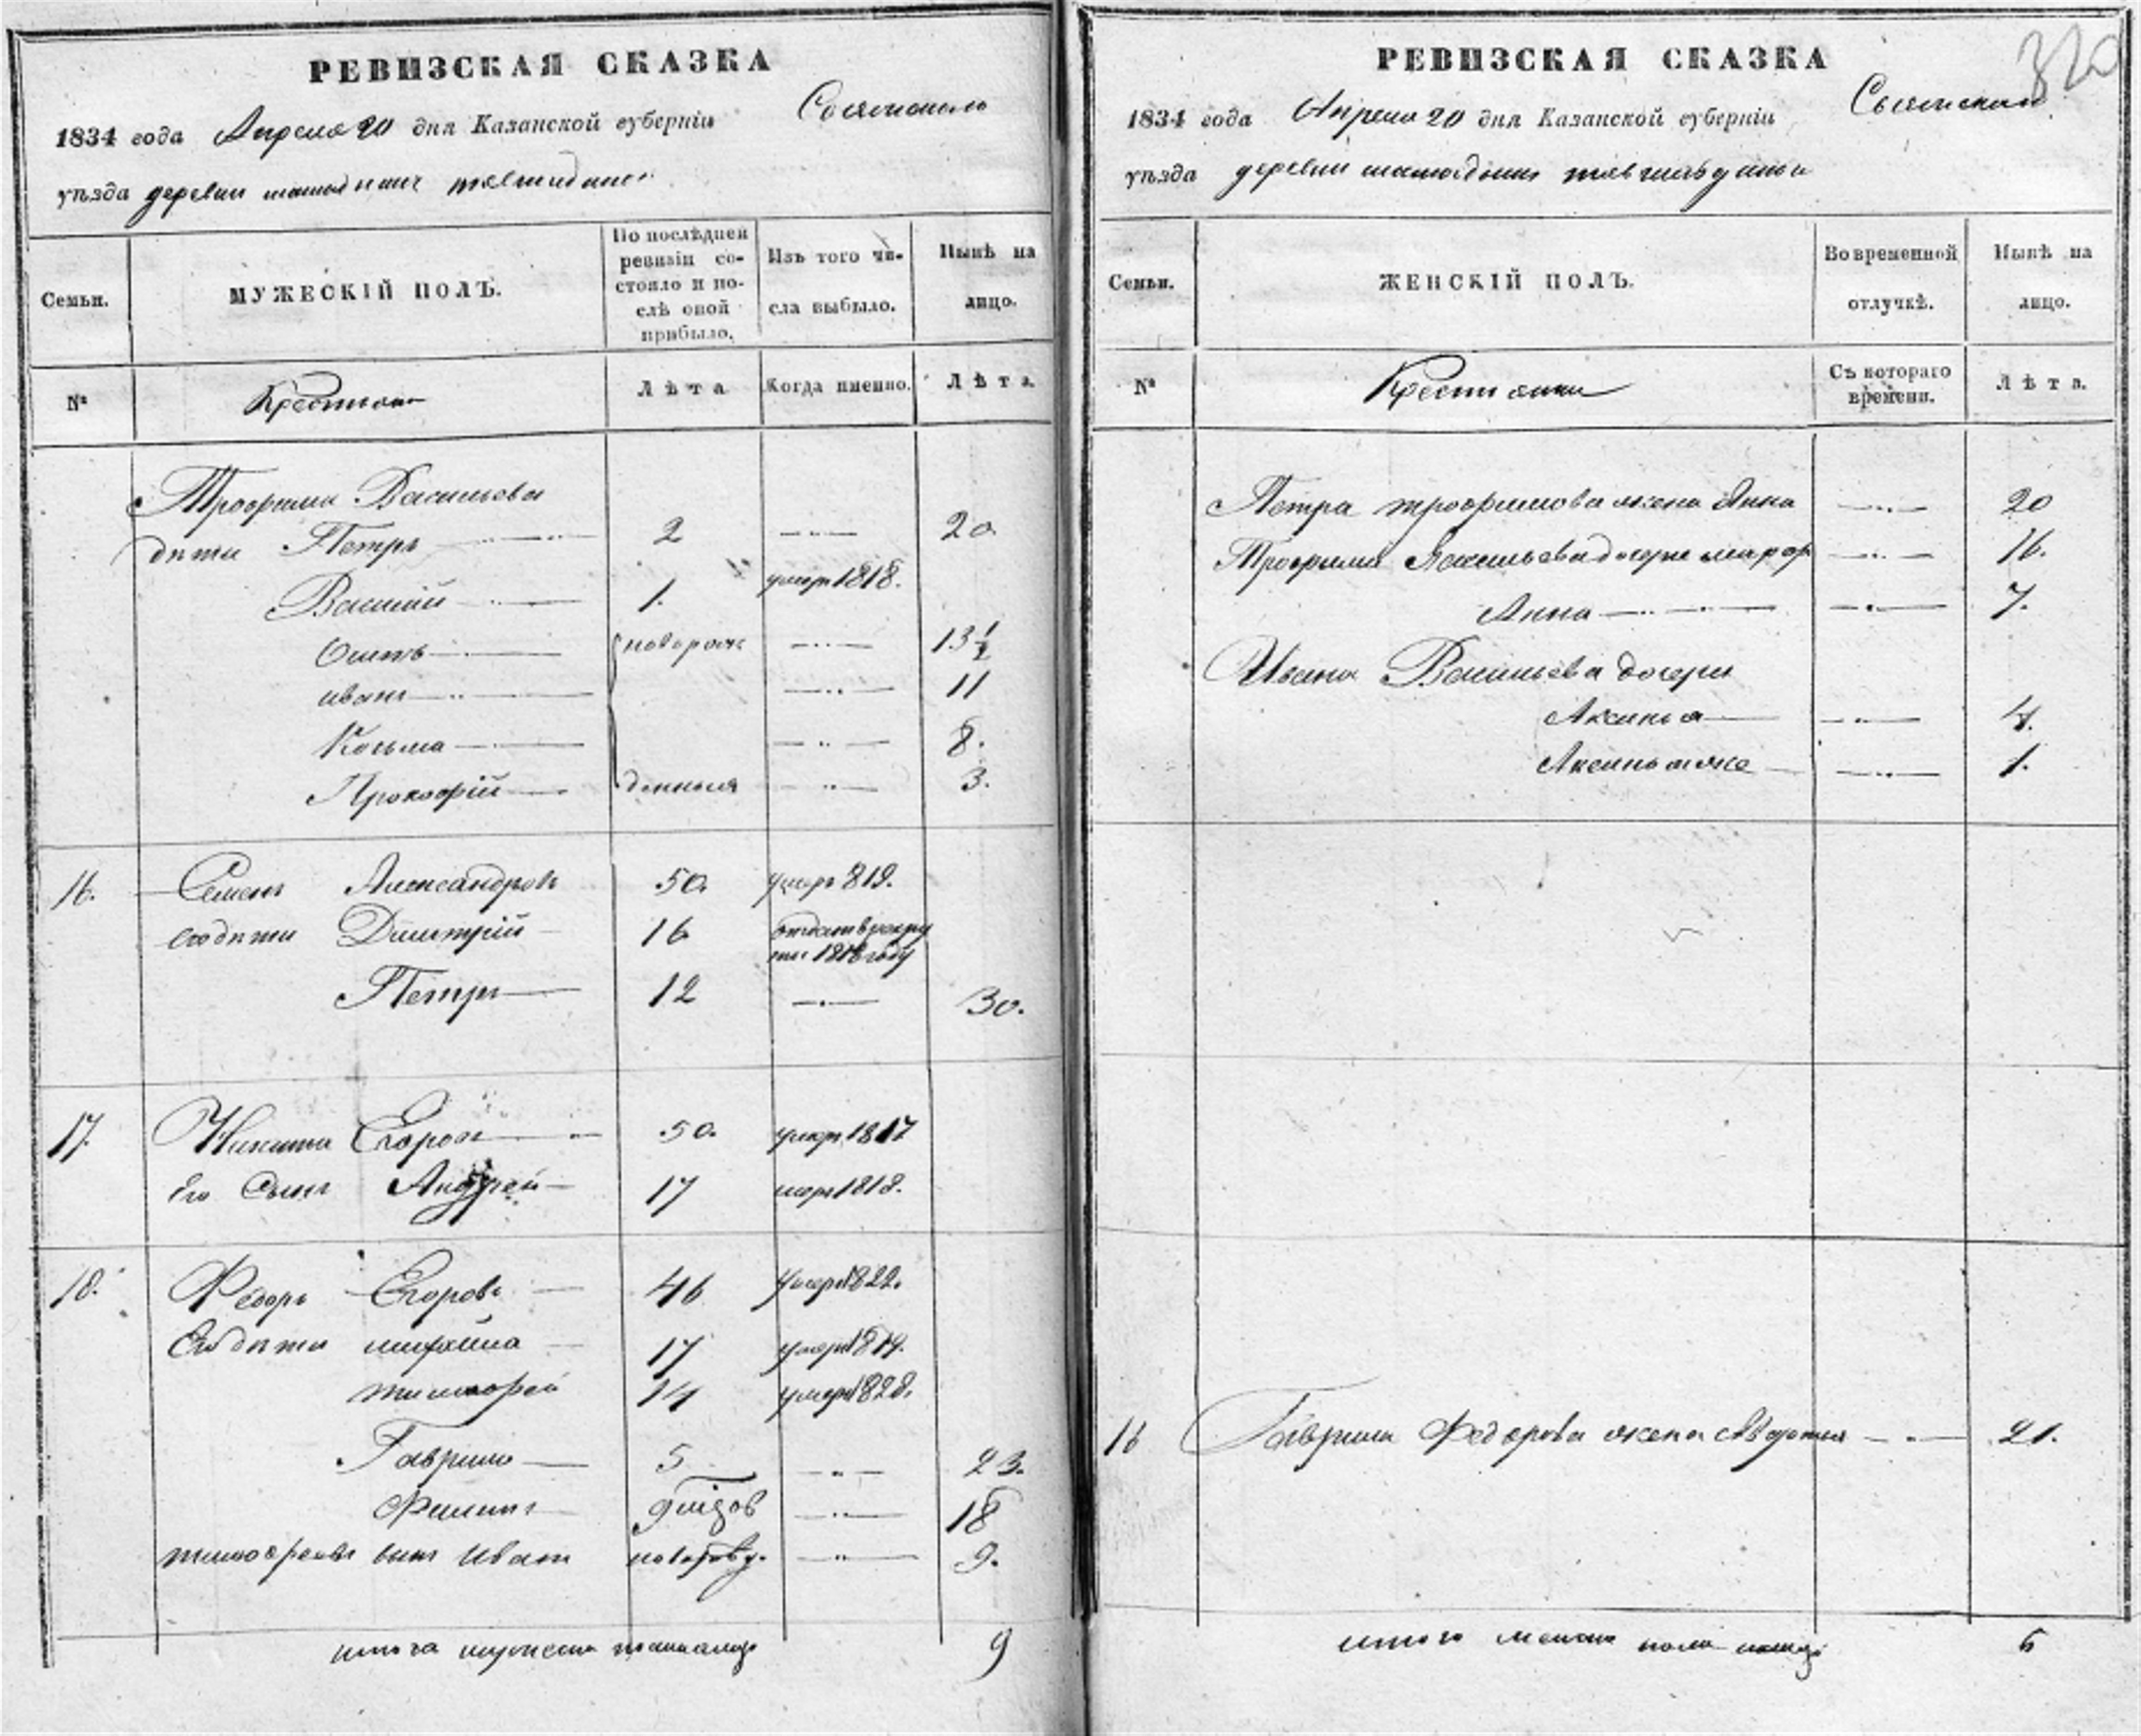 РЕВИЗСКАЯ СКАЗКА
1834 года Апреля 20 дня Казанской губерніи
уѣзда деревни
Семьи.
МУЖЕСКІЙ ПОЛЪ.
По послѣдней ревизіи состояло и послѣ оной прибыло.
Изъ того числа выбыло.
Нынѣ на лицо.
№
Крестьяне
Лѣта
Когда именно.
Лѣта.
Трофима Васильева
дѣти Петръ 2 20
Василій 1. умеръ 1818.
Осипъ новорож 13 1/2
иванъ 11
Козьма 8.
Прокофій денныя 3.
16. Семенъ Александровъ 50. умеръ 819.
его дѣти Димитрій 16 отданъ в рекру
ты 1818 году
Петръ 12 30.
17. Никита Егоровъ 50. умеръ 1817
Его Сынъ Андрей 17 умеръ 1818.
18. Федоръ Егоровъ 46 умеръ 1822.
Его дѣти михайла 17 умеръ 1819.
тимофей 14 умеръ 1828.
Гаврило 5 23.
Филипъ 18
тимофеевъ сынъ Иванъ новорож. 9.
итого мужеска пола на лицо 9
РЕВИЗСКАЯ СКАЗКА
320
1834 года Апреля 20 дня Казанской губерніи
уѣзда деревни
Семьи.
ЖЕНСКІЙ ПОЛЪ.
Во временной отлучкѣ.
Нынѣ на лицо.
№
Крестьянки
Съ котораго времени.
Лѣта.
Петра трофимова жена Анна 20
Трофима Васильева дочери 16.
Анна 7.
Ивана Васильева дочери
Аксинья 4.
Аксинья же 1.
18 Гаврила Федорова жена Авдотья 21.
итого женска пола на лицо 6